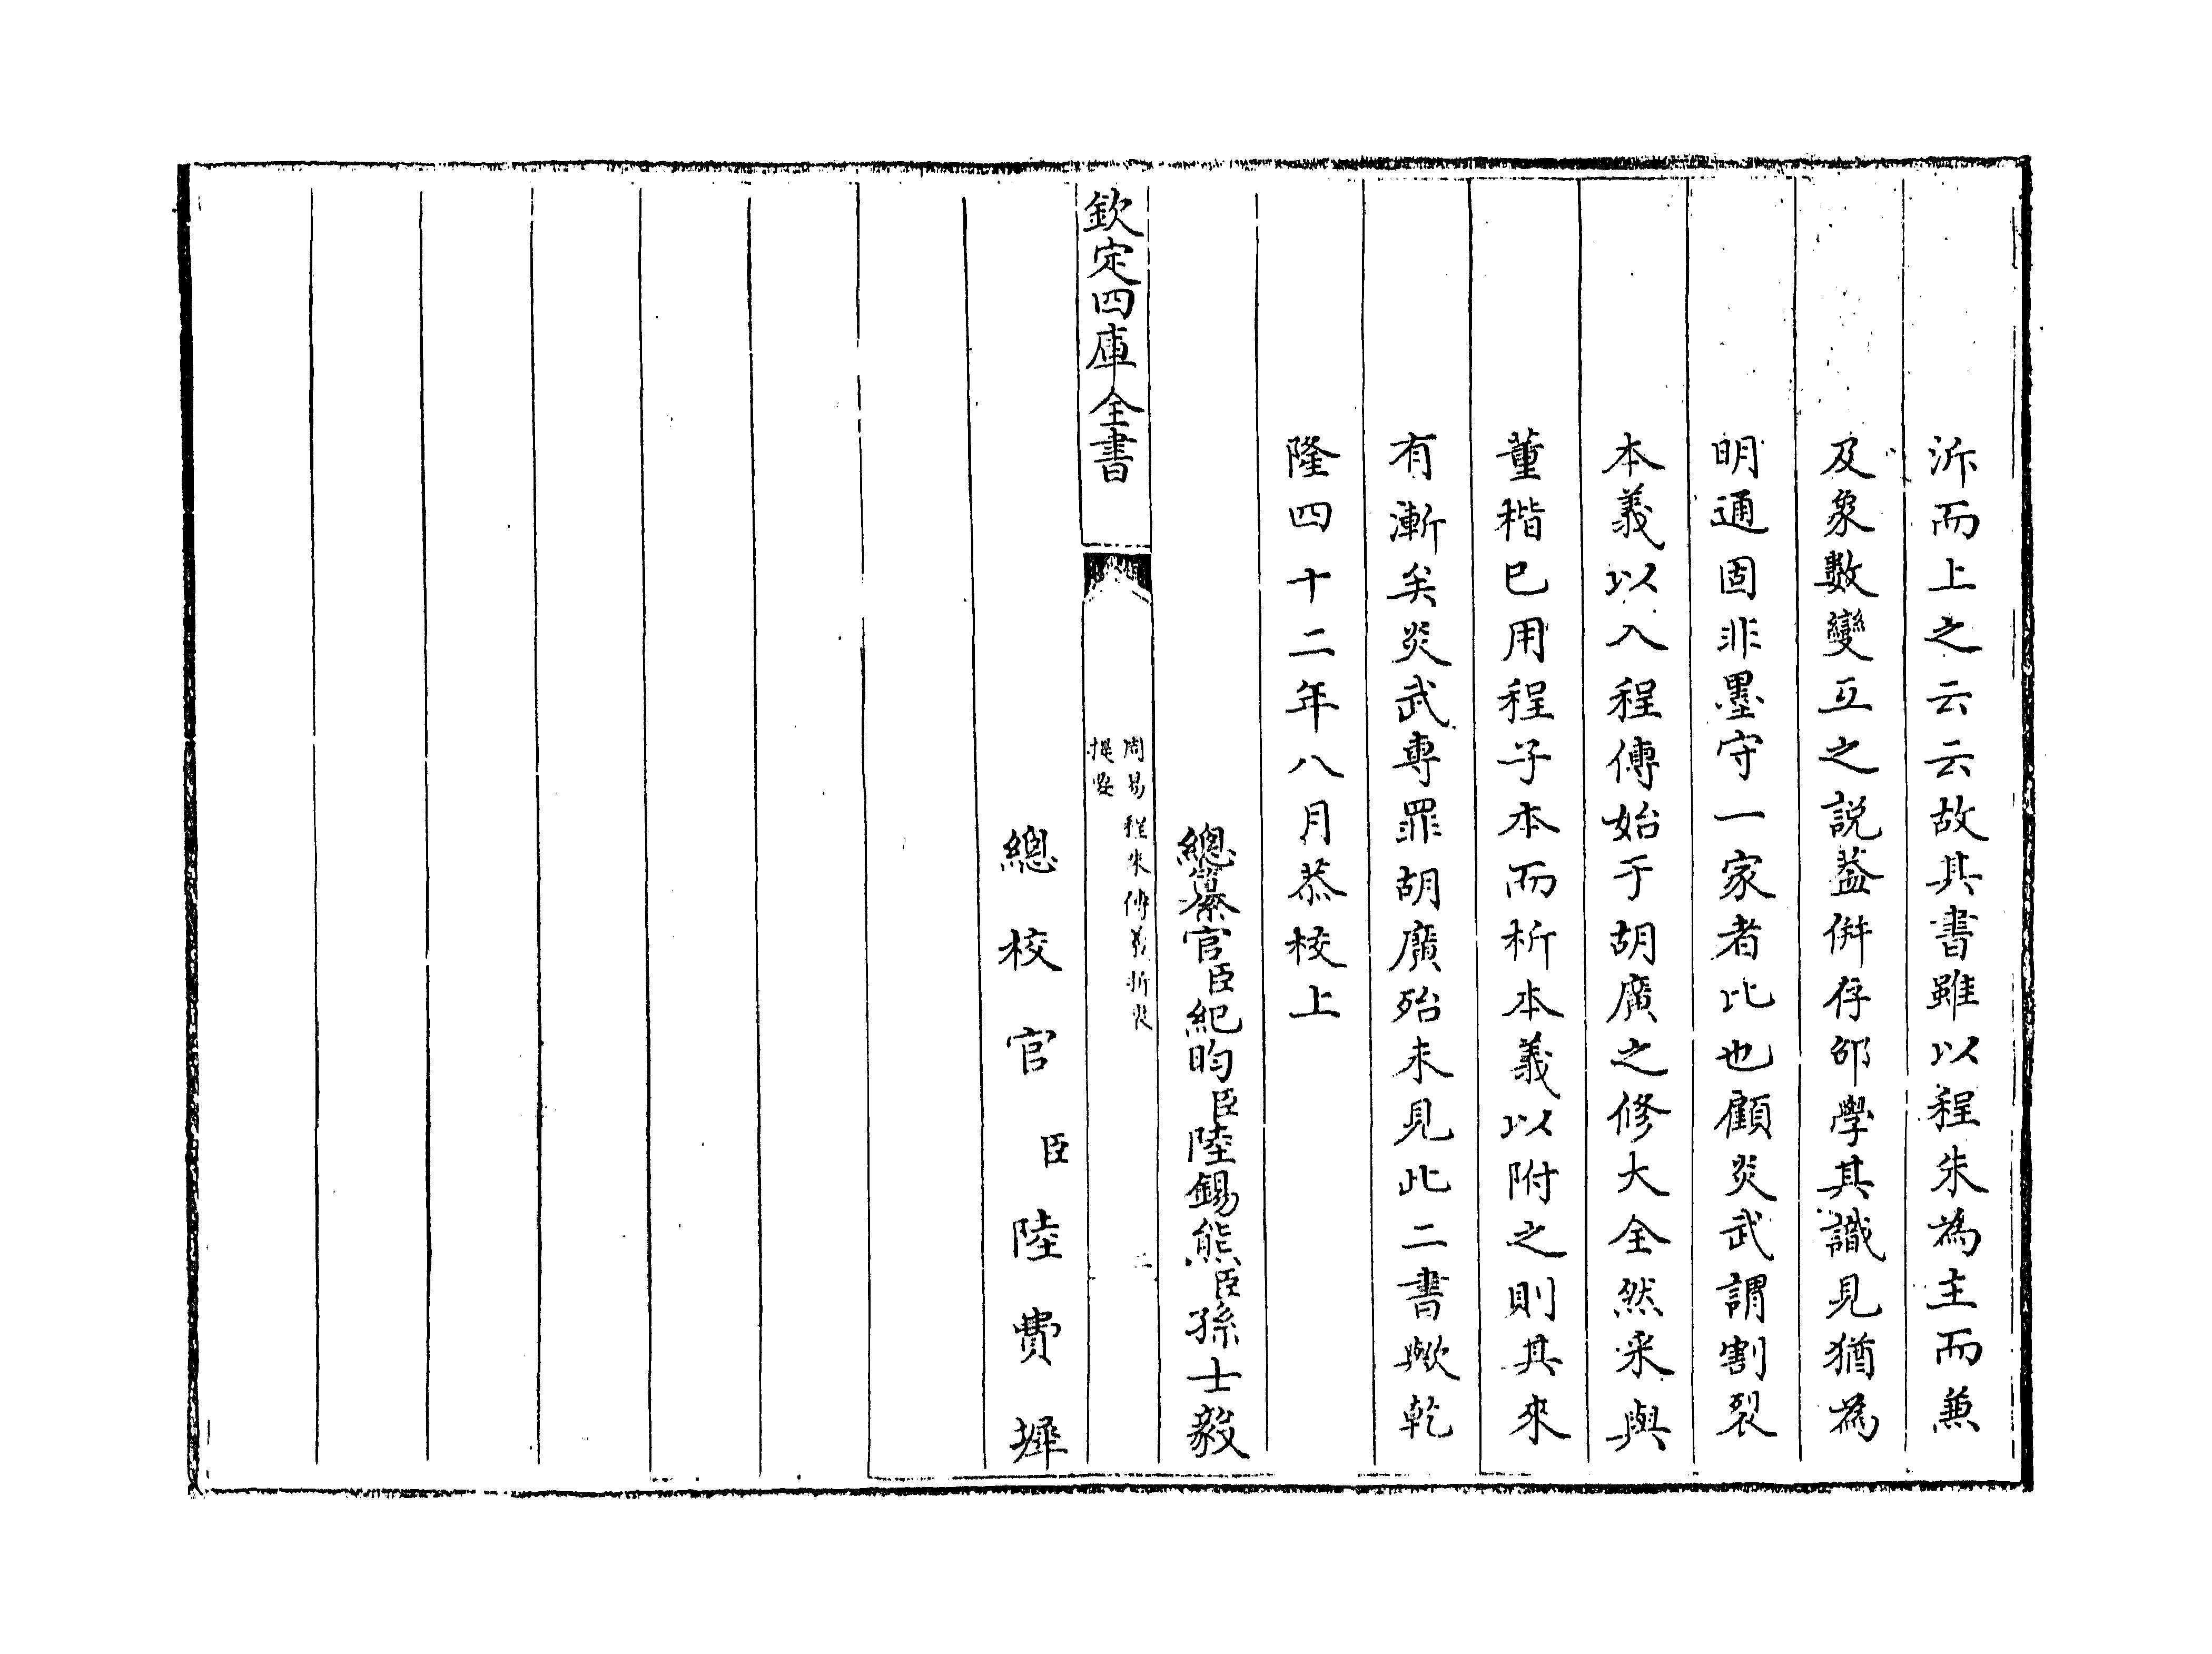 泝而上之云云故其書雖以程朱為主而兼
及象數變互之説葢倂存邵學其識見猶為
明通固非墨守一家者比也顧炎武謂割裂
本義以入程傳始于胡廣之修大全然采與
董楷已用程子本而析本義以附之則其來
有漸矣炎武專罪胡廣殆未見此二書歟乾
隆四十二年八月恭校上
總纂官臣紀昀臣陸錫熊臣孫士毅
欽定四庫全書
周易程朱傳義折衷
提要
二
總校官臣陸費墀